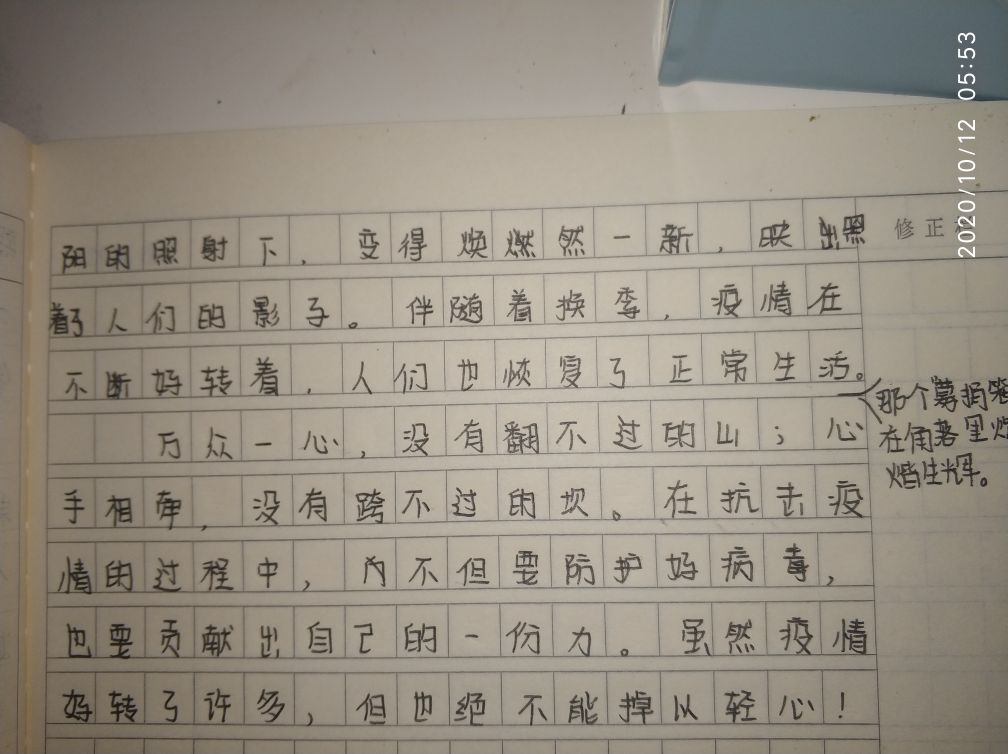 阳的照射下，变得焕燃然一新，映出照
着了人们的影子。伴随着换季，疫情在
不断好转着，人们也恢复了正常生活。
万众一心，没有翻不过的山；心
手相牵，没有跨不过的坎。在抗击疫
情的过程中，我不但要防护好病毒，
也要贡献出自己的一份力。虽然疫情
好转了许多，但也绝不能掉以轻心！
修正
那个募捐箱
在角落里
熠生辉。
2020/10/12 05:53